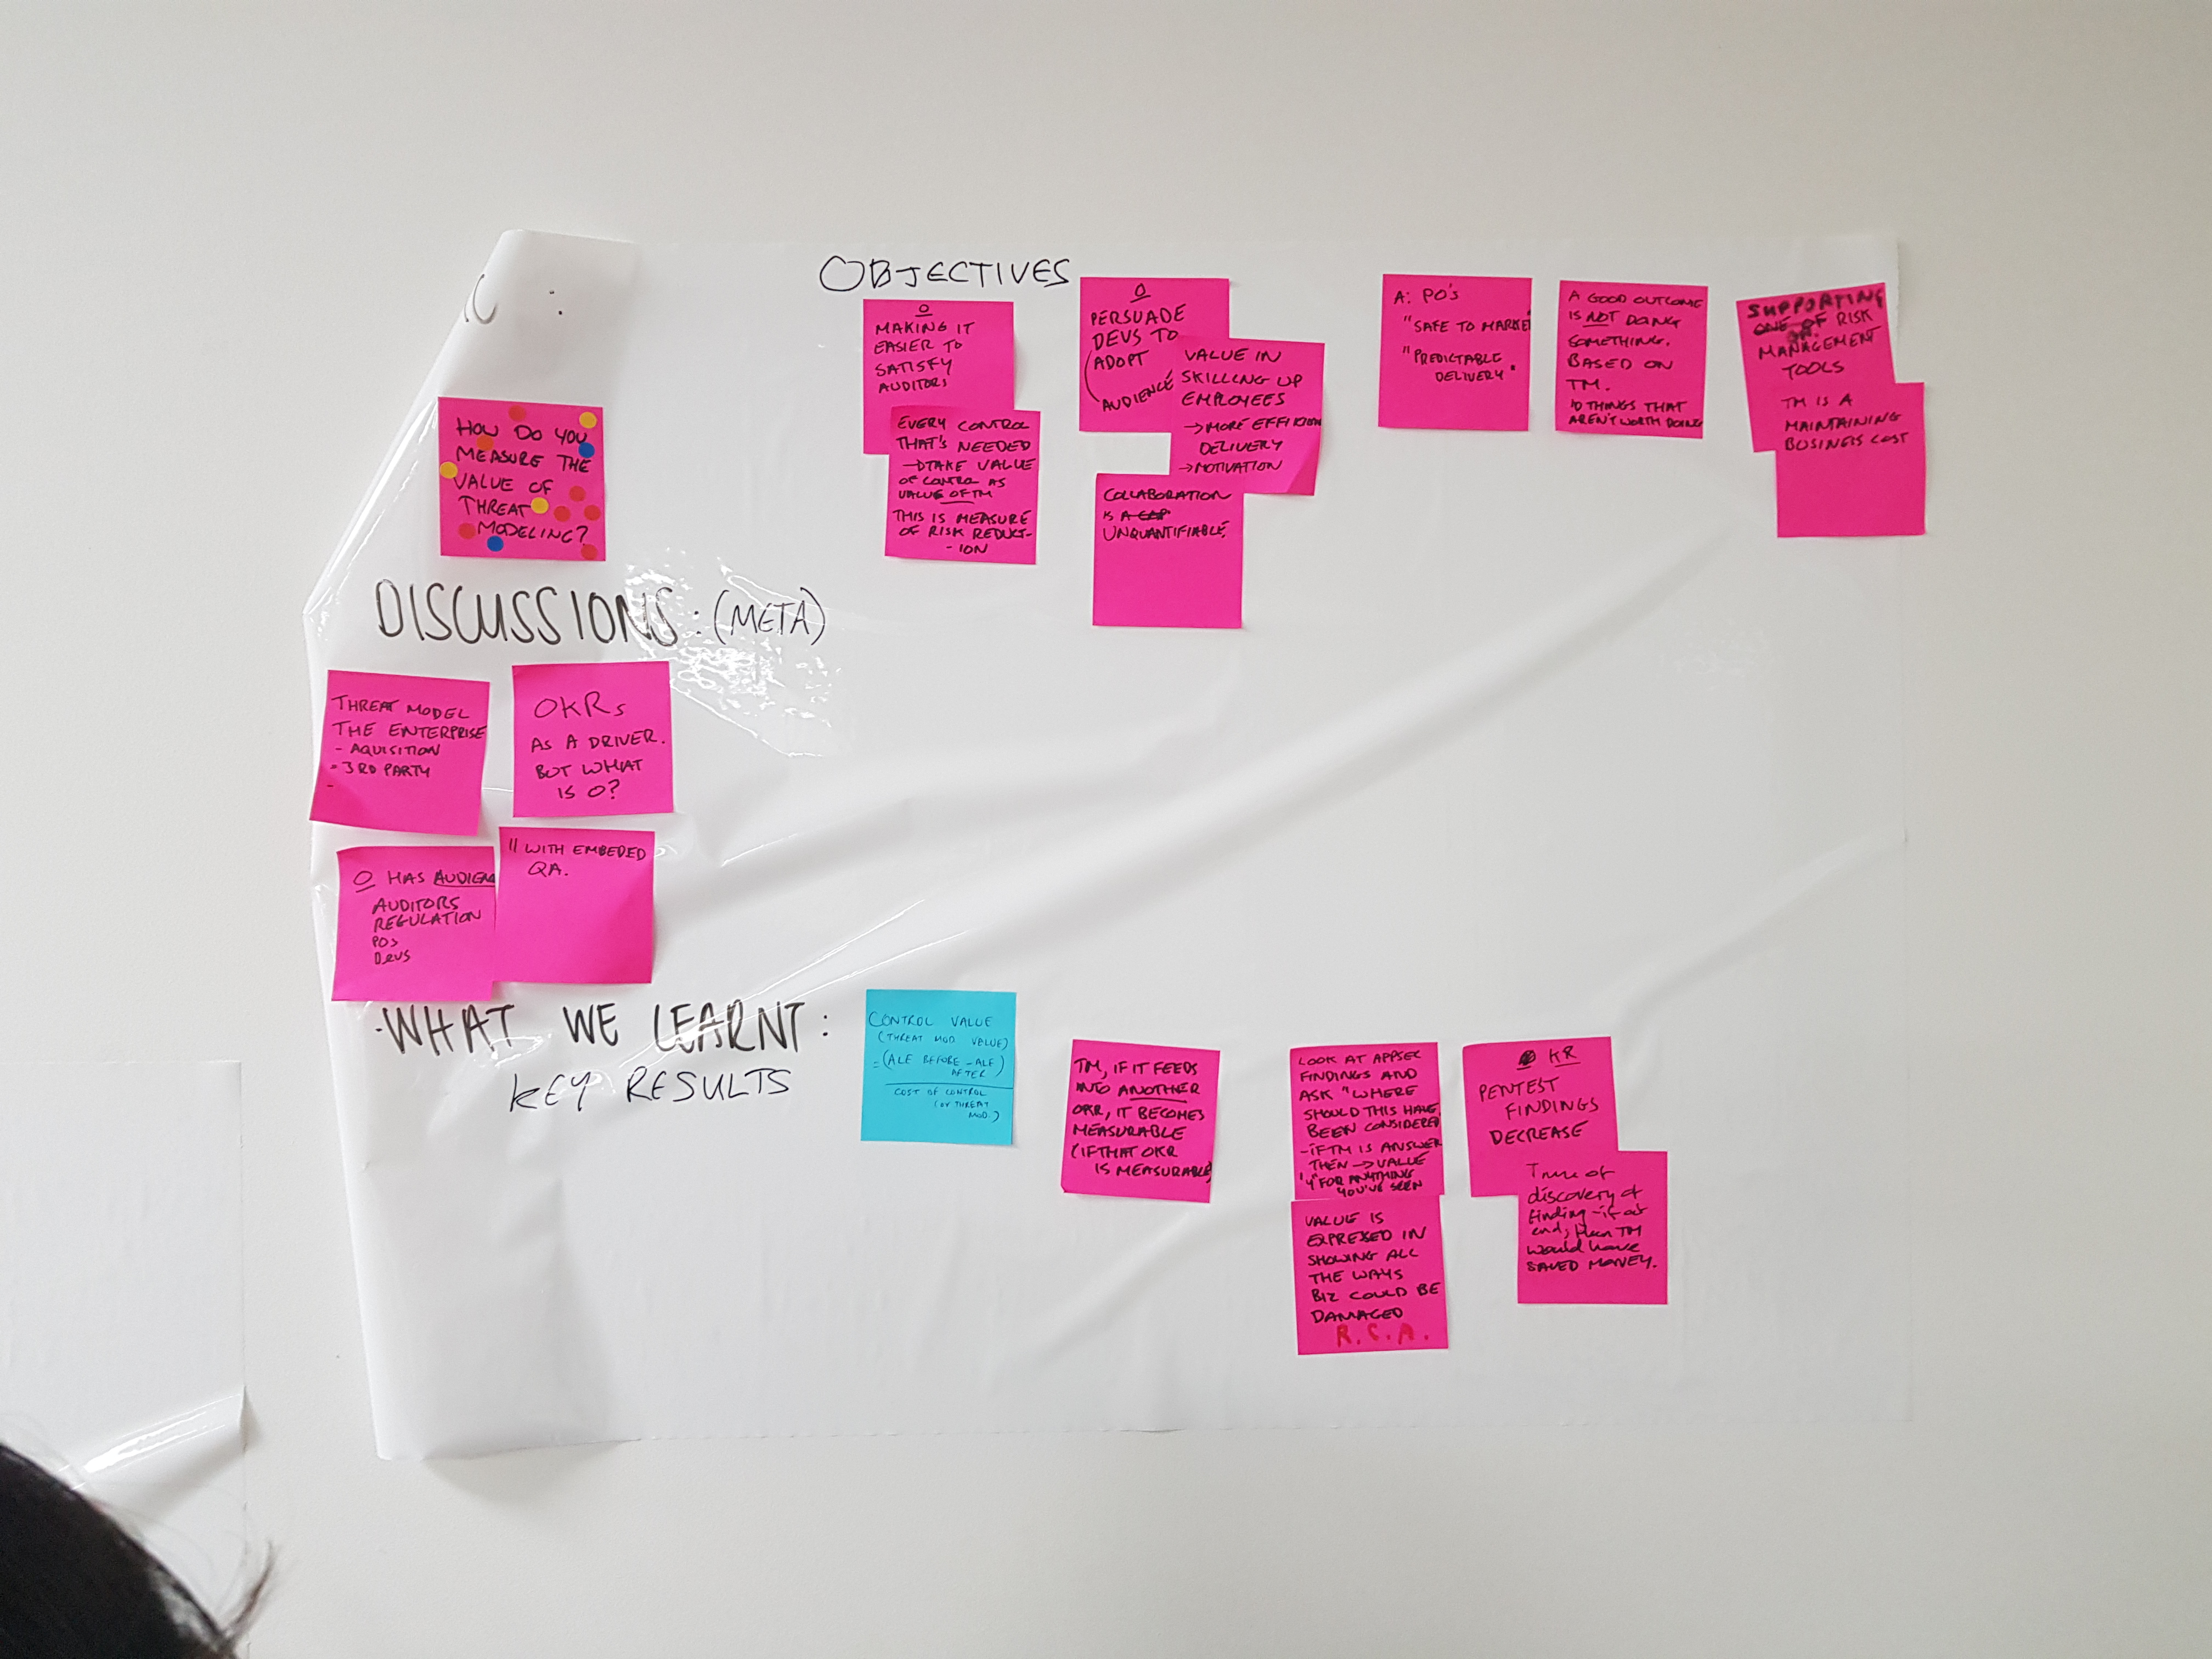 OBJECTIVES
HOW DO YOU
MEASURE THE
VALUE OF
THREAT
MODELING?
O
MAKING IT
EASIER TO
SATISFY
AUDITORS
EVERY CONTROL
THAT'S NEEDED
→ TAKE VALUE
OF CONTROL AS
VALUE OF TM
THIS IS MEASURE
OF RISK REDUCT-
-ION
O
PERSUADE
DEVS TO
ADOPT
AUDIENCE
VALUE IN
SKILLING UP
EMPLOYEES
→ MORE EFFICIEN
DELIVERY
→ MOTIVATION
COLLABORATION
IS A GAP
UNQUANTIFIABLE
A: PO'S
"SAFE TO MARKET"
"PREDICTABLE
DELIVERY"
A GOOD OUTCOME
IS NOT DOING
SOMETHING.
BASED ON
TM.
THINGS THAT
AREN'T WORTH DOING
SUPPORTING
ONE OF RISK
MANAGEMENT
TOOLS
TM IS A
MAINTAINING
BUSINESS COST
DISCUSSIONS: (META)
THREAT MODEL
THE ENTERPRISE
- AQUISITION
- 3RD PARTY
-
OKRs
AS A DRIVER.
BUT WHAT
IS O?
O HAS AUDIENC
AUDITORS
REGULATION
POs
DEVS
" WITH EMBEDED
QA.
- WHAT WE LEARNT:
KEY RESULTS
CONTROL VALUE
(THREAT MOD VALUE)
= (ALE BEFORE - ALE)
AFTER
COST OF CONTROL
(OR THREAT
MOD.)
TM, IF IT FEEDS
INTO ANOTHER
OKR, IT BECOMES
MEASURABLE
(IF THAT OKR
IS MEASURABLE)
LOOK AT APPSEC
FINDINGS AND
ASK "WHERE
SHOULD THIS HAVE
BEEN CONSIDERED
- IF TM IS ANSWER
THEN → VALUE
"Y" FOR ANYTHING
YOU'VE SEEN
VALUE IS
EXPRESSED IN
SHOWING ALL
THE WAYS
BIZ COULD BE
DAMAGED
R.C.A.
KR
PENTEST
FINDINGS
DECREASE
Time of
discovery of
finding - if at
end, then TM
would have
SAVED MONEY.